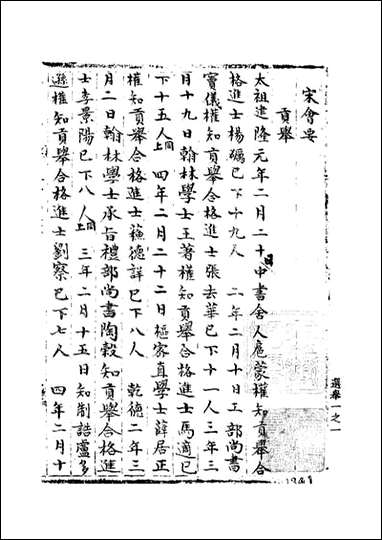 宋會要
貢舉
太祖建隆元年二月二十日中書舍人扈蒙權知貢舉合
格進士楊礪已下十九人　二年二月十日工部尚書
竇儀權知貢舉合格進士張去華已下十一人三年三
月十九日翰林學士王著權知貢舉合格進士馬適已
下十五人同上　四年二月二十二日樞密直學士薛居正
權知貢舉合格進士蘇德詳已下八人　乾德二年三
月二日翰林學士承旨禮部尚書陶穀知貢舉合格進
士李景陽已下八人同上　三年二月十五日知制誥盧多
遜權知貢舉合格進士劉察已下七人　四年二月十
選舉一之一